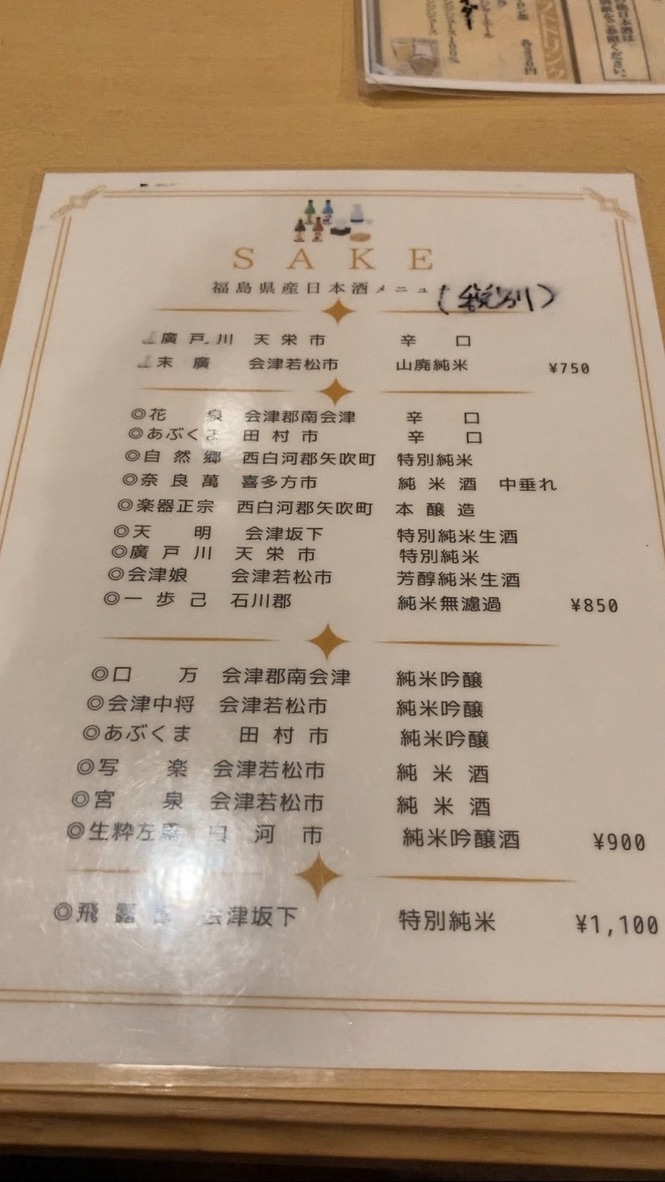 ストドリンク
SAKE
福島県産日本酒メニュー(税別)
廣戸川 天栄市 辛口
末廣 会津若松市 山廃純米 ¥750
◎花泉 会津郡南会津 辛口
◎あぶくま 田村市 辛口
◎自然郷 西白河郡矢吹町 特別純米
◎奈良萬 喜多方市 純米酒 中垂れ
◎楽器正宗 西白河郡矢吹町 本醸造
◎天明 会津坂下 特別純米生酒
◎廣戸川 天栄市 特別純米
◎会津娘 会津若松市 芳醇純米生酒
◎一歩己 石川郡 純米無濾過 ¥850
◎口万 会津郡南会津 純米吟醸
◎会津中将 会津若松市 純米吟醸
◎あぶくま 田村市 純米吟醸
◎写楽 会津若松市 純米酒
◎宮泉 会津若松市 純米酒
◎生粋左馬 白河市 純米吟醸酒 ¥900
◎飛露喜 会津坂下 特別純米 ¥1,100